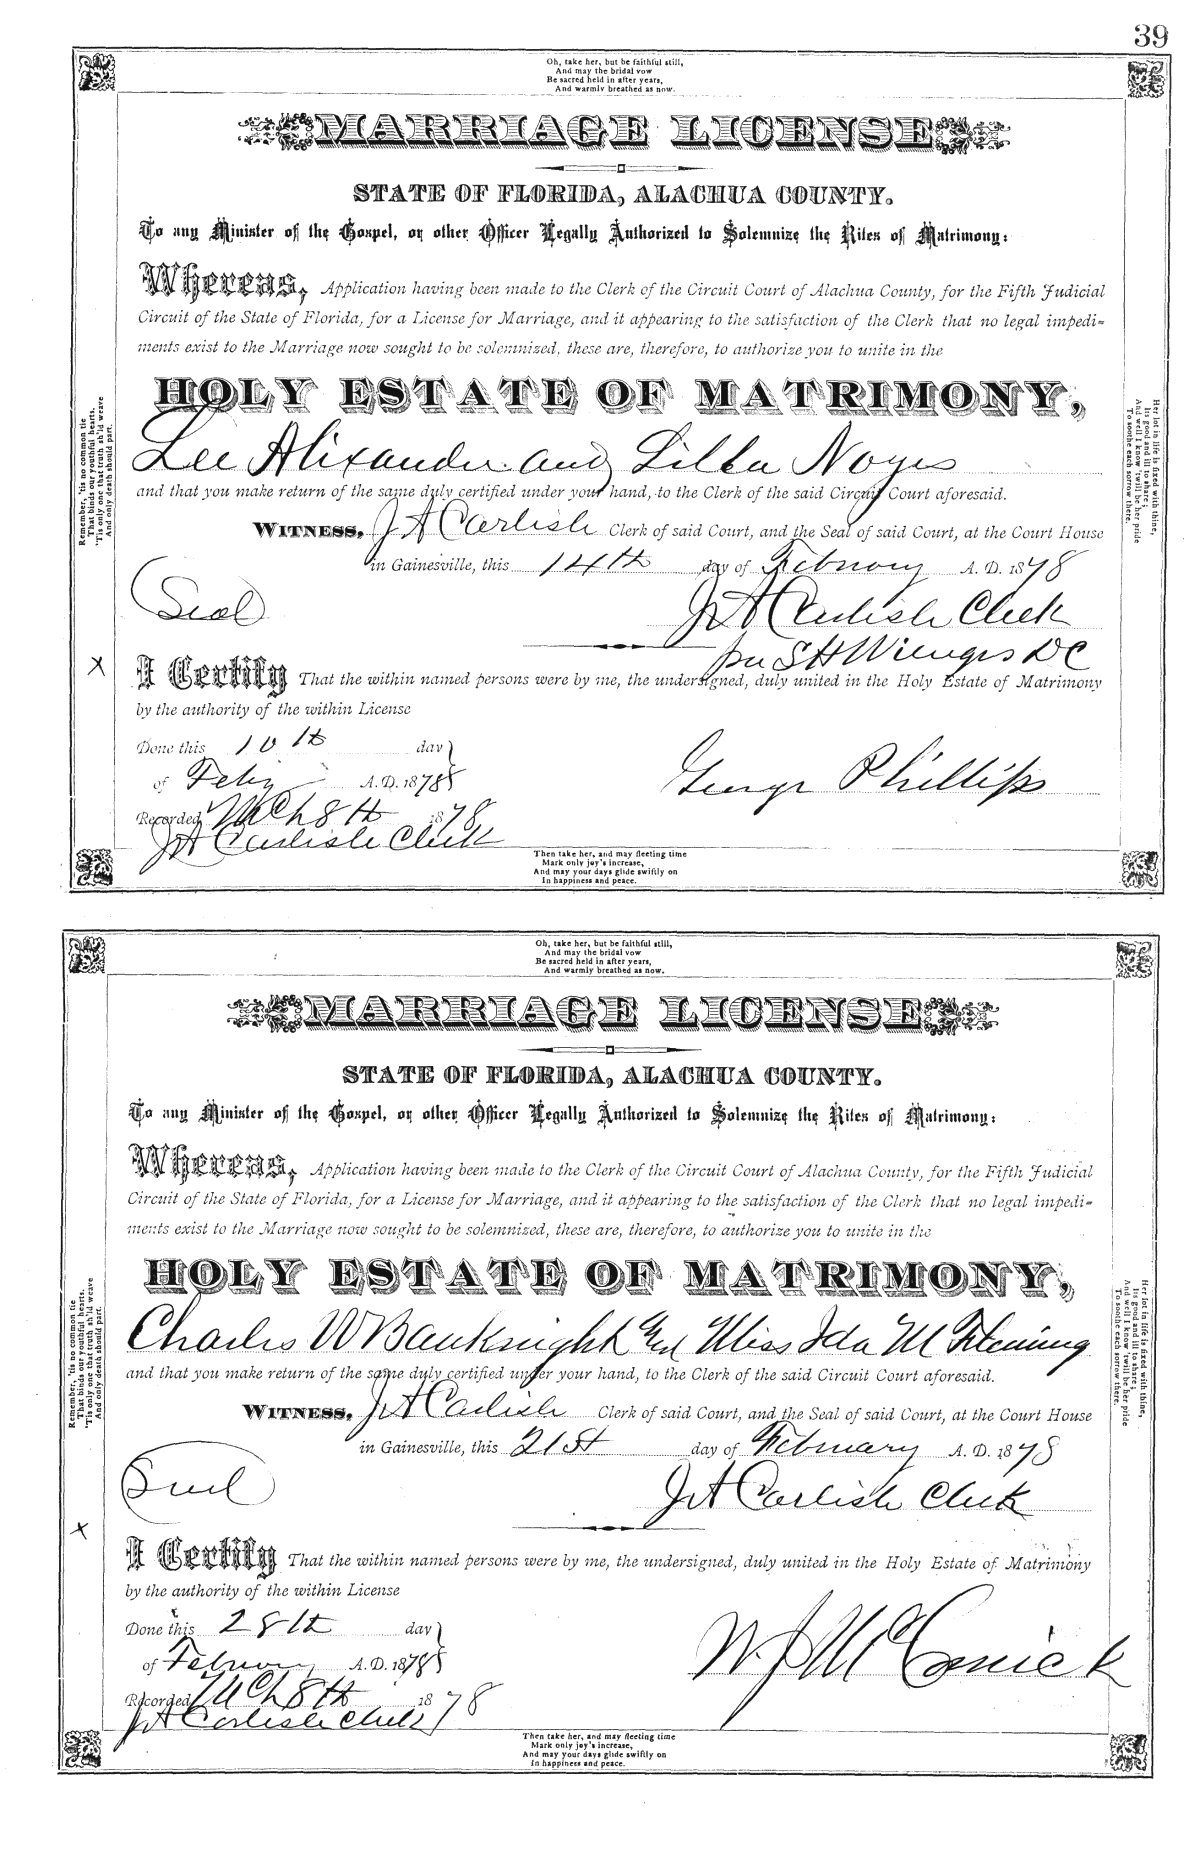 39
Oh, take her, but be faithful still,
And may the bridal vow
Be sacred held in after years,
And warmly breathed as now.
MARRIAGE LICENSE
STATE OF FLORIDA, ALACHUA COUNTY.
To any Minister of the Gospel, or other Officer Legally Authorized to Solemnize the Rites of Matrimony:
Whereas, Application having been made to the Clerk of the Circuit Court of Alachua County, for the Fifth Judicial
Circuit of the State of Florida, for a License for Marriage, and it appearing to the satisfaction of the Clerk that no legal impedi-
ments exist to the Marriage now sought to be solemnized, these are, therefore, to authorize you to unite in the
HOLY ESTATE OF MATRIMONY,
Lee Alixander and Lilla Noyes
and that you make return of the same duly certified under your hand, to the Clerk of the said Circuit Court aforesaid.
WITNESS, J A Carlisle Clerk of said Court, and the Seal of said Court, at the Court House
in Gainesville, this 14th day of February A. D. 1878
(Seal)
J A Carlisle Clerk
per S H Wienges DC
I Certify That the within named persons were by me, the undersigned, duly united in the Holy Estate of Matrimony
by the authority of the within License
Done this 10th day
of Feby A. D. 1878
George Phillips
Recorded Mch 8th 1878
J A Carlisle Clerk
Remember, 'tis no common tie
That binds our youthful hearts,
'Tis only one that truth sh'ld weave
And only death should part.
Her lot in life is fixed with thine,
Its good and ill to share;
And well I know 'twill be her pride
To soothe each sorrow there.
Then take her, and may fleeting time
Mark only joy's increase,
And may your days glide swiftly on
In happiness and peace.
X
Oh, take her, but be faithful still,
And may the bridal vow
Be sacred held in after years,
And warmly breathed as now.
MARRIAGE LICENSE
STATE OF FLORIDA, ALACHUA COUNTY.
To any Minister of the Gospel, or other Officer Legally Authorized to Solemnize the Rites of Matrimony:
Whereas, Application having been made to the Clerk of the Circuit Court of Alachua County, for the Fifth Judicial
Circuit of the State of Florida, for a License for Marriage, and it appearing to the satisfaction of the Clerk that no legal impedi-
ments exist to the Marriage now sought to be solemnized, these are, therefore, to authorize you to unite in the
HOLY ESTATE OF MATRIMONY,
Charles W Bauknight and Miss Ida M Fleming
and that you make return of the same duly certified under your hand, to the Clerk of the said Circuit Court aforesaid.
WITNESS, J A Carlisle Clerk of said Court, and the Seal of said Court, at the Court House
in Gainesville, this 21st day of February A. D. 1878
(Seal)
J A Carlisle Clerk
I Certify That the within named persons were by me, the undersigned, duly united in the Holy Estate of Matrimony
by the authority of the within License
Done this 28th day
of February A. D. 1878
W. J McCormick
Recorded Mch 8th 1878
J A Carlisle Clerk
Remember, 'tis no common tie
That binds our youthful hearts,
'Tis only one that truth sh'ld weave
And only death should part.
Her lot in life is fixed with thine,
Its good and ill to share;
And well I know 'twill be her pride
To soothe each sorrow there.
Then take her, and may fleeting time
Mark only joy's increase,
And may your days glide swiftly on
In happiness and peace.
X